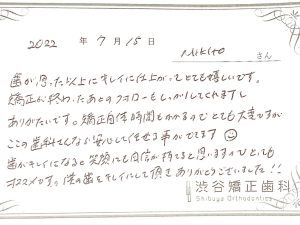 2022 年 7月 15日
Mikito さん
歯が思った以上にキレイに仕上がってとても嬉しいです。
矯正が終わったあとのフォローもしっかりしてくれますし
ありがたいです。矯正自体時間もかかるのでとても大変ですが
ここの歯科さんなら安心して任せる事ができます☺
歯がキレイになると笑顔にも自信が持てると思いますのでとても
オススメです。僕の歯をキレイにして頂きありがとうございました!!
渋谷矯正歯科
Shibuya Orthodontics